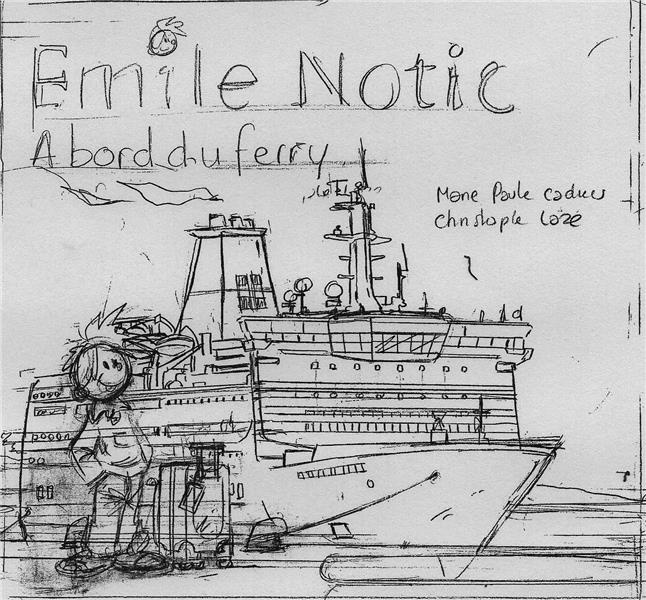 Emile Notic
A bord du ferry
Marie Paule
Christophe Lazé